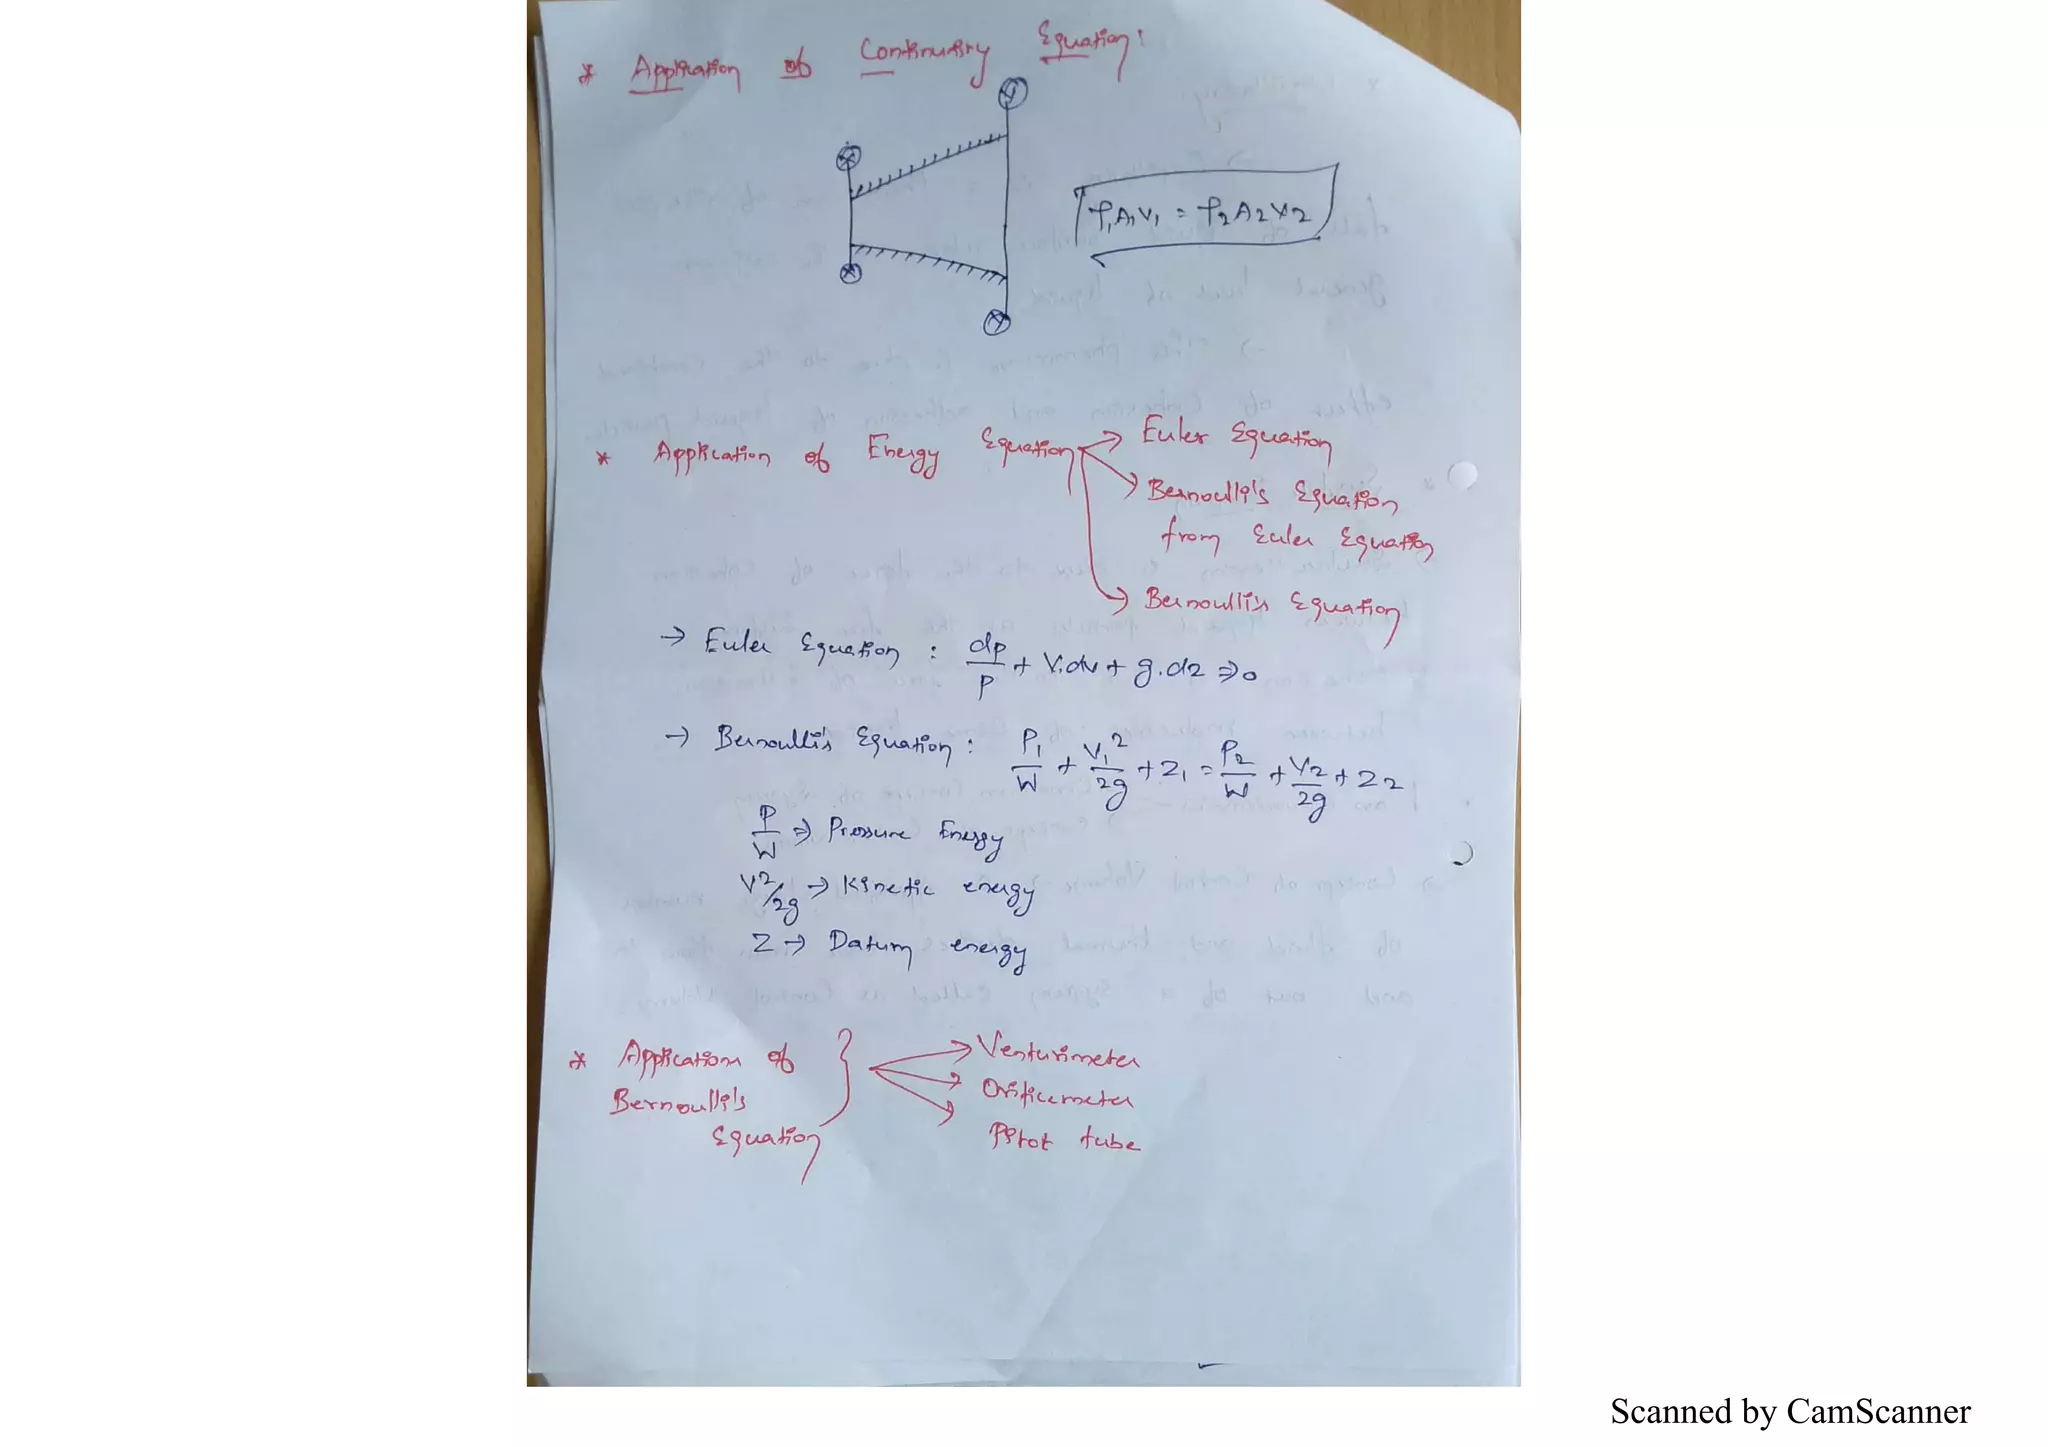 * Application of Continuity Equation:
ρ1A1V1 = ρ2A2V2
* Application of Energy Equation → Euler Equation
→ Bernoulli's Equation
from Euler Equation
→ Bernoulli's Equation
→ Euler Equation : dp/ρ + V.dv + g.dz ⇒ 0
→ Bernoulli's Equation : P1/W + V1²/2g + Z1 = P2/W + V2/2g + Z2
P/W ⇒ Pressure Energy
V²/2g → Kinetic energy
Z → Datum energy
* Application of
Bernoulli's
Equation
→ Venturimeter
→ Orificemeter
→ Pitot tube
Scanned by CamScanner